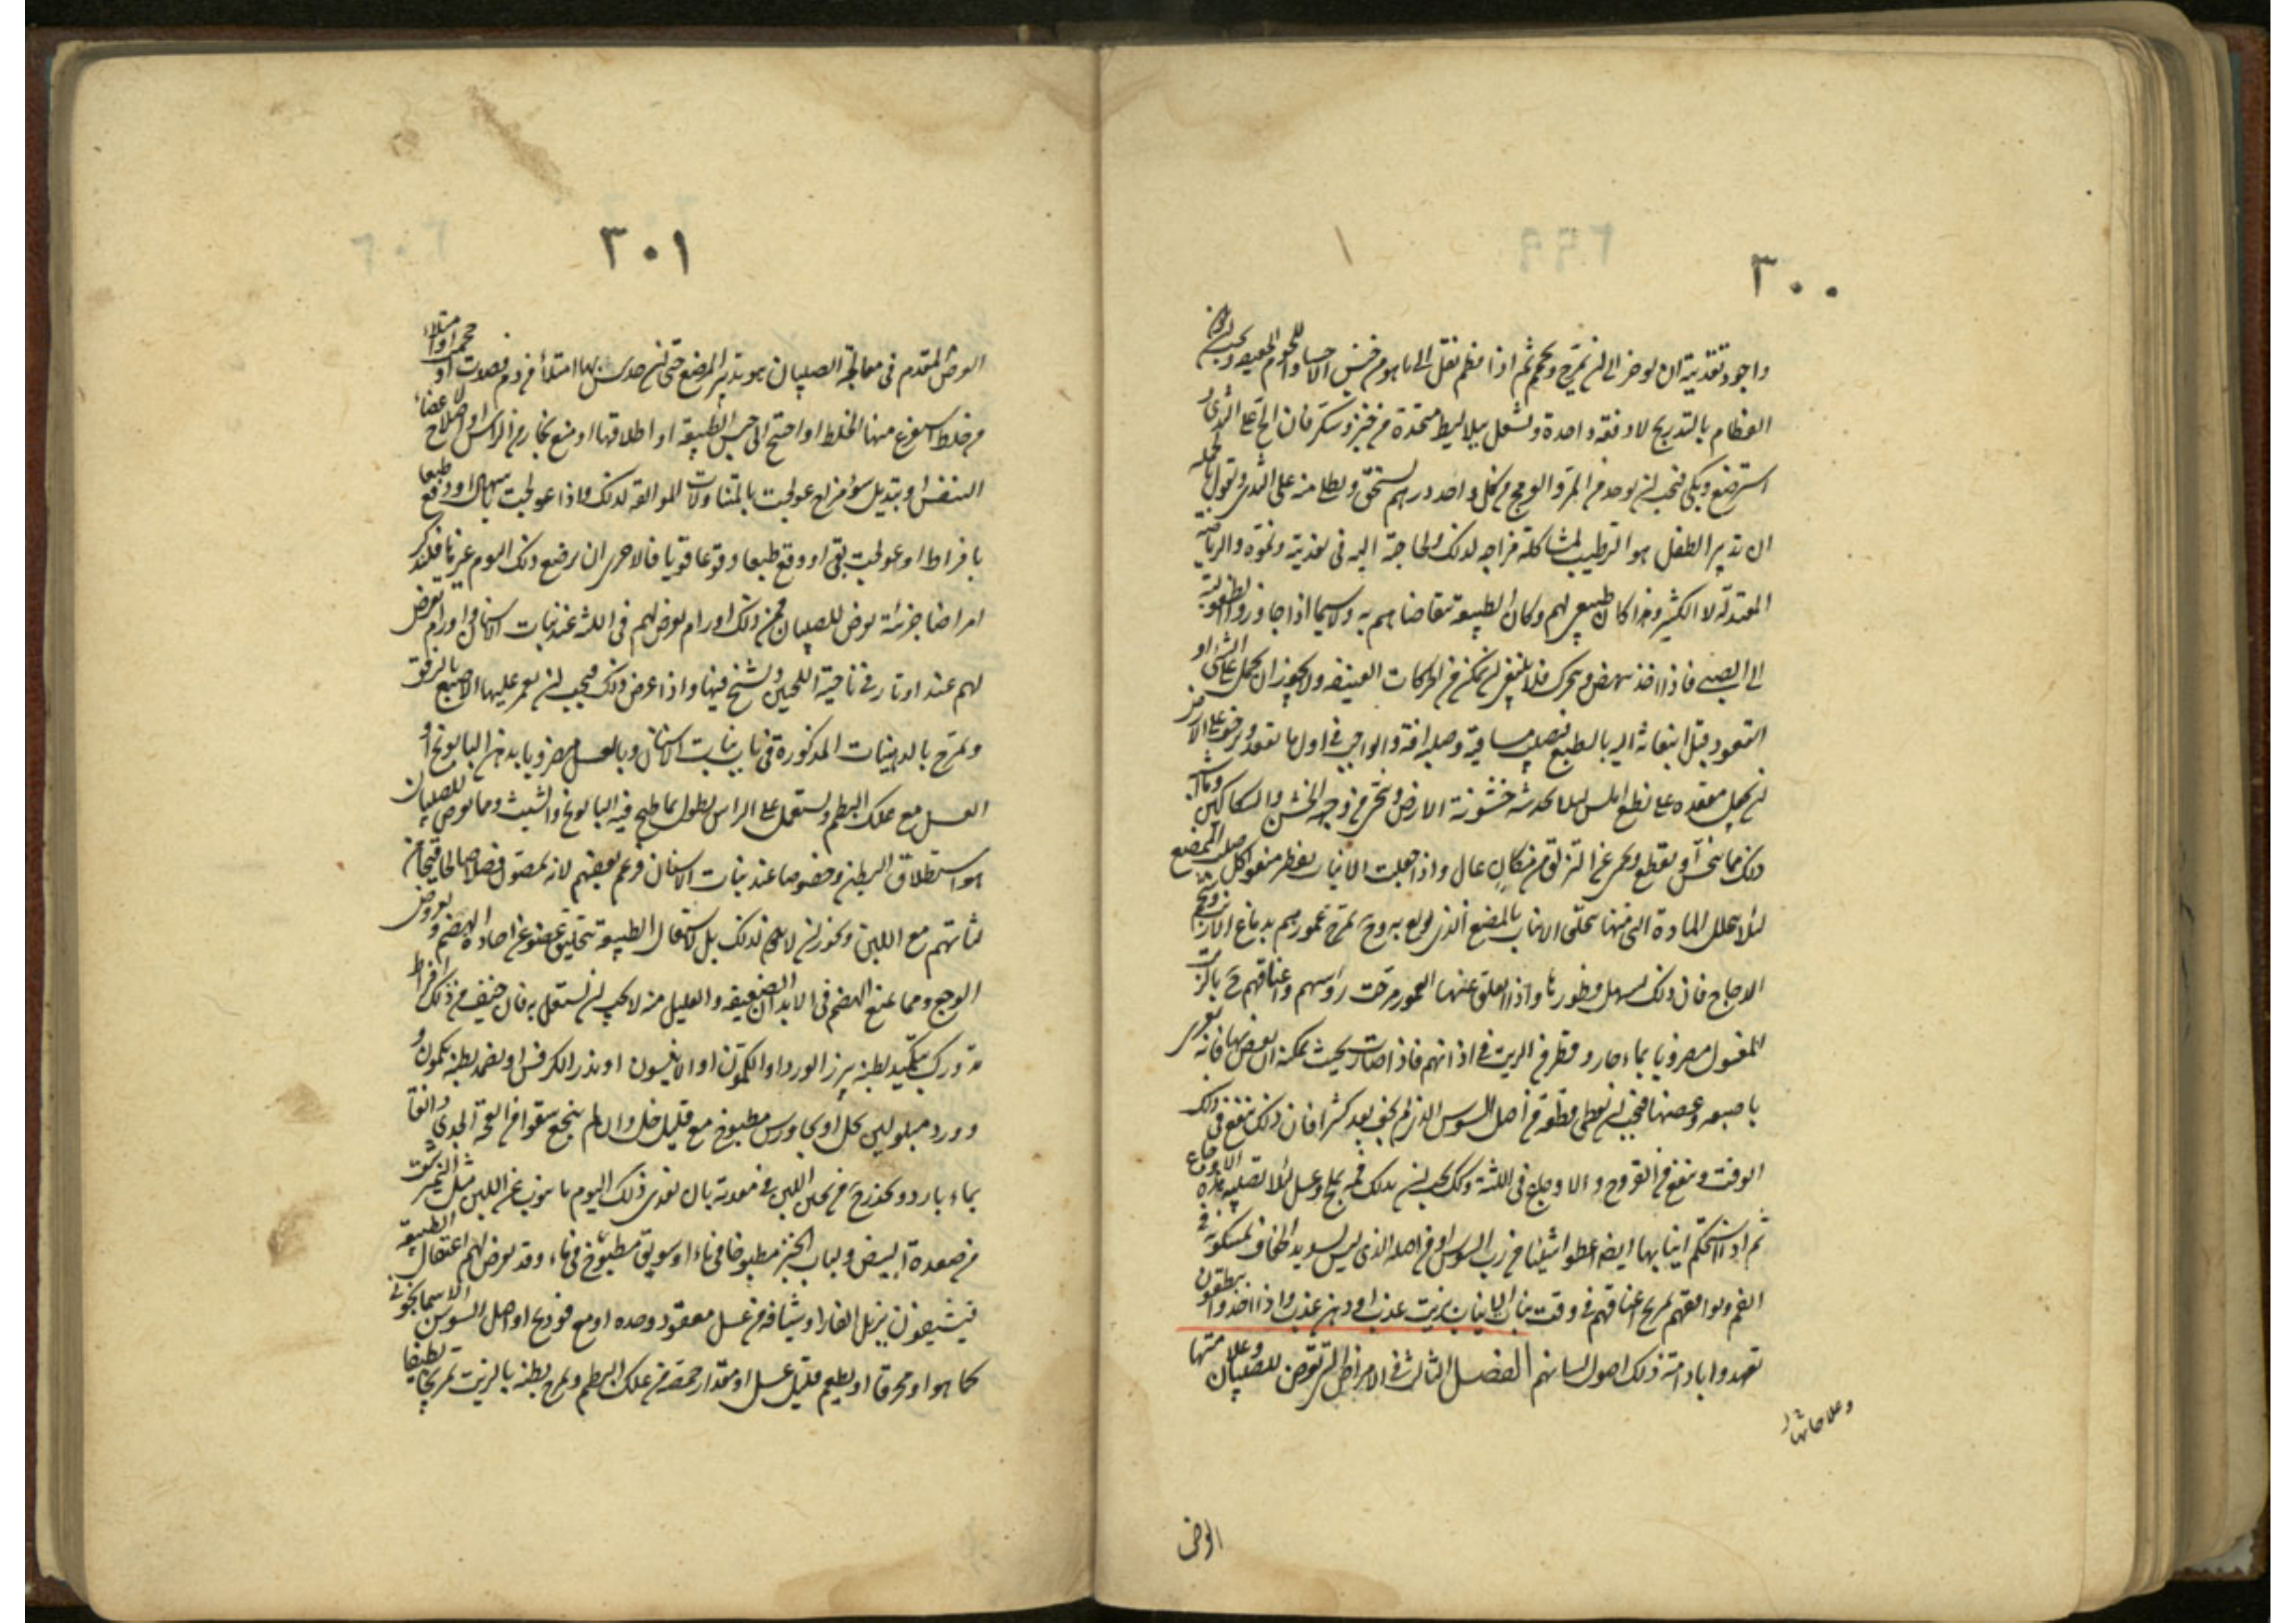 ٣٠٠
واجود تغذيته ان يوخر الى ان يمرخ ويحم ثم اذا فطم نقل الى ما هو من جنس الاحساء واللحوم الخفيفة ويجب ان يكون
الفطام بالتدريج لا دفعة واحدة ويشغل ببلاليط متخذة من خبز وسكر فان الح على الثدى و
استرضع وبكى فيجب ان يوخذ من المر والفودنج من كل واحد درهم يسحق ويطلى منه على الثدى ونقول بالجملة
ان تدبير الطفل هو الترطيب لمشاكلة مزاجه لذلك ولحاجته اليه فى تغذيته ونموه والرياضة
المعتدلة الكثيرة وهذا كالطبيعى لهم وكان الطبيعة تتقاضاهم به ولا سيما اذا جاوزوا الطفولية
الى الصبى فاذا اخذ ينهض ويتحرك فلا ينبغى ان يمكن من الحركات العنيفة ولا يجوز ان يحمل على المشى او
القعود قبل انبعاثه اليه بالطبع فيصيب ساقيه وصلبه افة والواجب فى اول ما يقعد ويزحف على الارض
ان يجعل مقعده على نطع املس لئلا يخدشه خشونة الارض وينحى عن وجهه الخشب والسكاكين وما اشبه
ذلك مما ينخس او يقطع ويحمى عن التزلق من مكان عال واذا جعلت الانياب تفطر منعوا كل صلب الممضغ
لئلا يتحلل المادة التى منها يتخلق الانياب بالمضغ الذى يولع به وح يمرخ غمورهم بدماغ الارنب وشحم
الدجاج فان ذلك يسهل فطورها واذا انفلق عنها الغمور مرخت رؤسهم واعناقهم ح بالزيت
المغسول مضروبا بماء حار وقطر من الزيت فى اذانهم فاذا صارت بحيث يمكنه ان يعض بها فانه يغرى
باصبعه وعضها فيجب ان يعطى قطعة من اصل السوس الذى لم يجف بعد كثيرا فان ذلك ينفع فى ذلك
الوقت وينفع من القروح والاوجاع فى اللثة وكذلك يجب ان يدلك فمه بملح وعسل لئلا تصيبه هذه الاوجاع
ثم اذا استحكم انيابها ايضا اعطوا شيئا من رب السوس او من اصله الذى ليس بشديد الجفاف يمسكونه فى
الفم ويوافقهم تمريخ اعناقهم فى وقت نبات الانياب بزيت عذب او دهن عذب واذا اخذوا ينطقون
تعهدوا بادامة ذلك اصول لسانهم الفصل الثالث فى الامراض التى تعرض للصبيان وعلاجاتها
وعلاجاتها
الغرض
٣٠١
الغرض المقدم فى معالجة الصبيان هو تدبير المرضع حتى ان حدس بها امتلاء من دم فصدت او حجمت او امتلاء
من خلط استفرغ منها الخلط او احتيج الى حبس الطبيعة او اطلاقها او منع بخار من الراس او اصلاح لاعضاء
التنفس او تبديل سوء مزاج عولجت بالمتناولات الموافقة لذلك واذا عولجت باسهال او وقع طبعا
بافراط او عولجت بقى او وقع طبعا وقوعا قويا فالاحرى ان يرضع ذلك اليوم غيرها فلنذكر
امراضا جزئية تعرض للصبيان فمن ذلك اورام تعرض لهم فى اللثة عند نبات الاسنان واورام تعرض
لهم عند اوتار فى ناحية اللحيين وتشنج فيها واذا عرض ذلك فيجب ان يغمز عليها الاصبع بالرفق
وتمرخ بالدهنيات المذكورة فى باب نبات الاسنان وبالعسل مضروبا بدهن البابونج او
العسل مع علك البطم ويستعمل على الراس نطول بماء طبخ فيه البابونج والشبث ومما يعرض للصبيان
هو استطلاق البطن وخصوصا عند نبات الاسنان زعم بعضهم لانه يمص فضلا مالحا قيحيا من
لثاتهم مع اللبن ويجوز ان لا يكون لذلك بل لاشتغال الطبيعة بتخليق عضو عن اجادة الهضم ولعروض
الوجع ومما يمنع الهضم فى الابدان الضعيفة والقليل منه لا يجب ان يشتغل به فان خيف من ذلك افراط
تدورك بتكميد بطنه ببزر الورد او الكمون او الانيسون او بذر الكرفس او يضمد بطنه بكمون و
وورد مبلولين بخل او بجاورس مطبوخ مع قليل خل وان لم ينجع سقوا من انفحة الجدى دانقا
بماء بارد ويحذر ح من تجبن اللبن فى معدته بان يغذى ذلك اليوم ما ينوب عن اللبن مثل النيمبرشت
من صفرة البيض ولباب الخبز مطبوخا فى ماء او سويق مطبوخ فى ماء وقد يعرض لهم اعتقال الطبيعة
فيشيفون بزبل الفار او شيافة من عسل معقود وحده او مع فودنج او اصل السوسن الاسمانجونى
كما هو او محرقا او يطعم قليل عسل او مقدار حمصة من علك البطم ويمرخ بطنه بالزيت تمريخا لطيفا